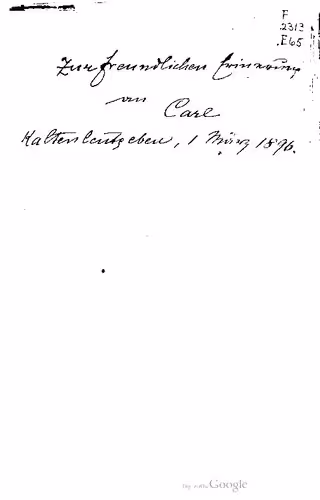 F
2313
.E65
Zur freundlichen Erinnerung
an
Carl
Kaltenleutgeben, 1 März 1896.
Digitized by Google